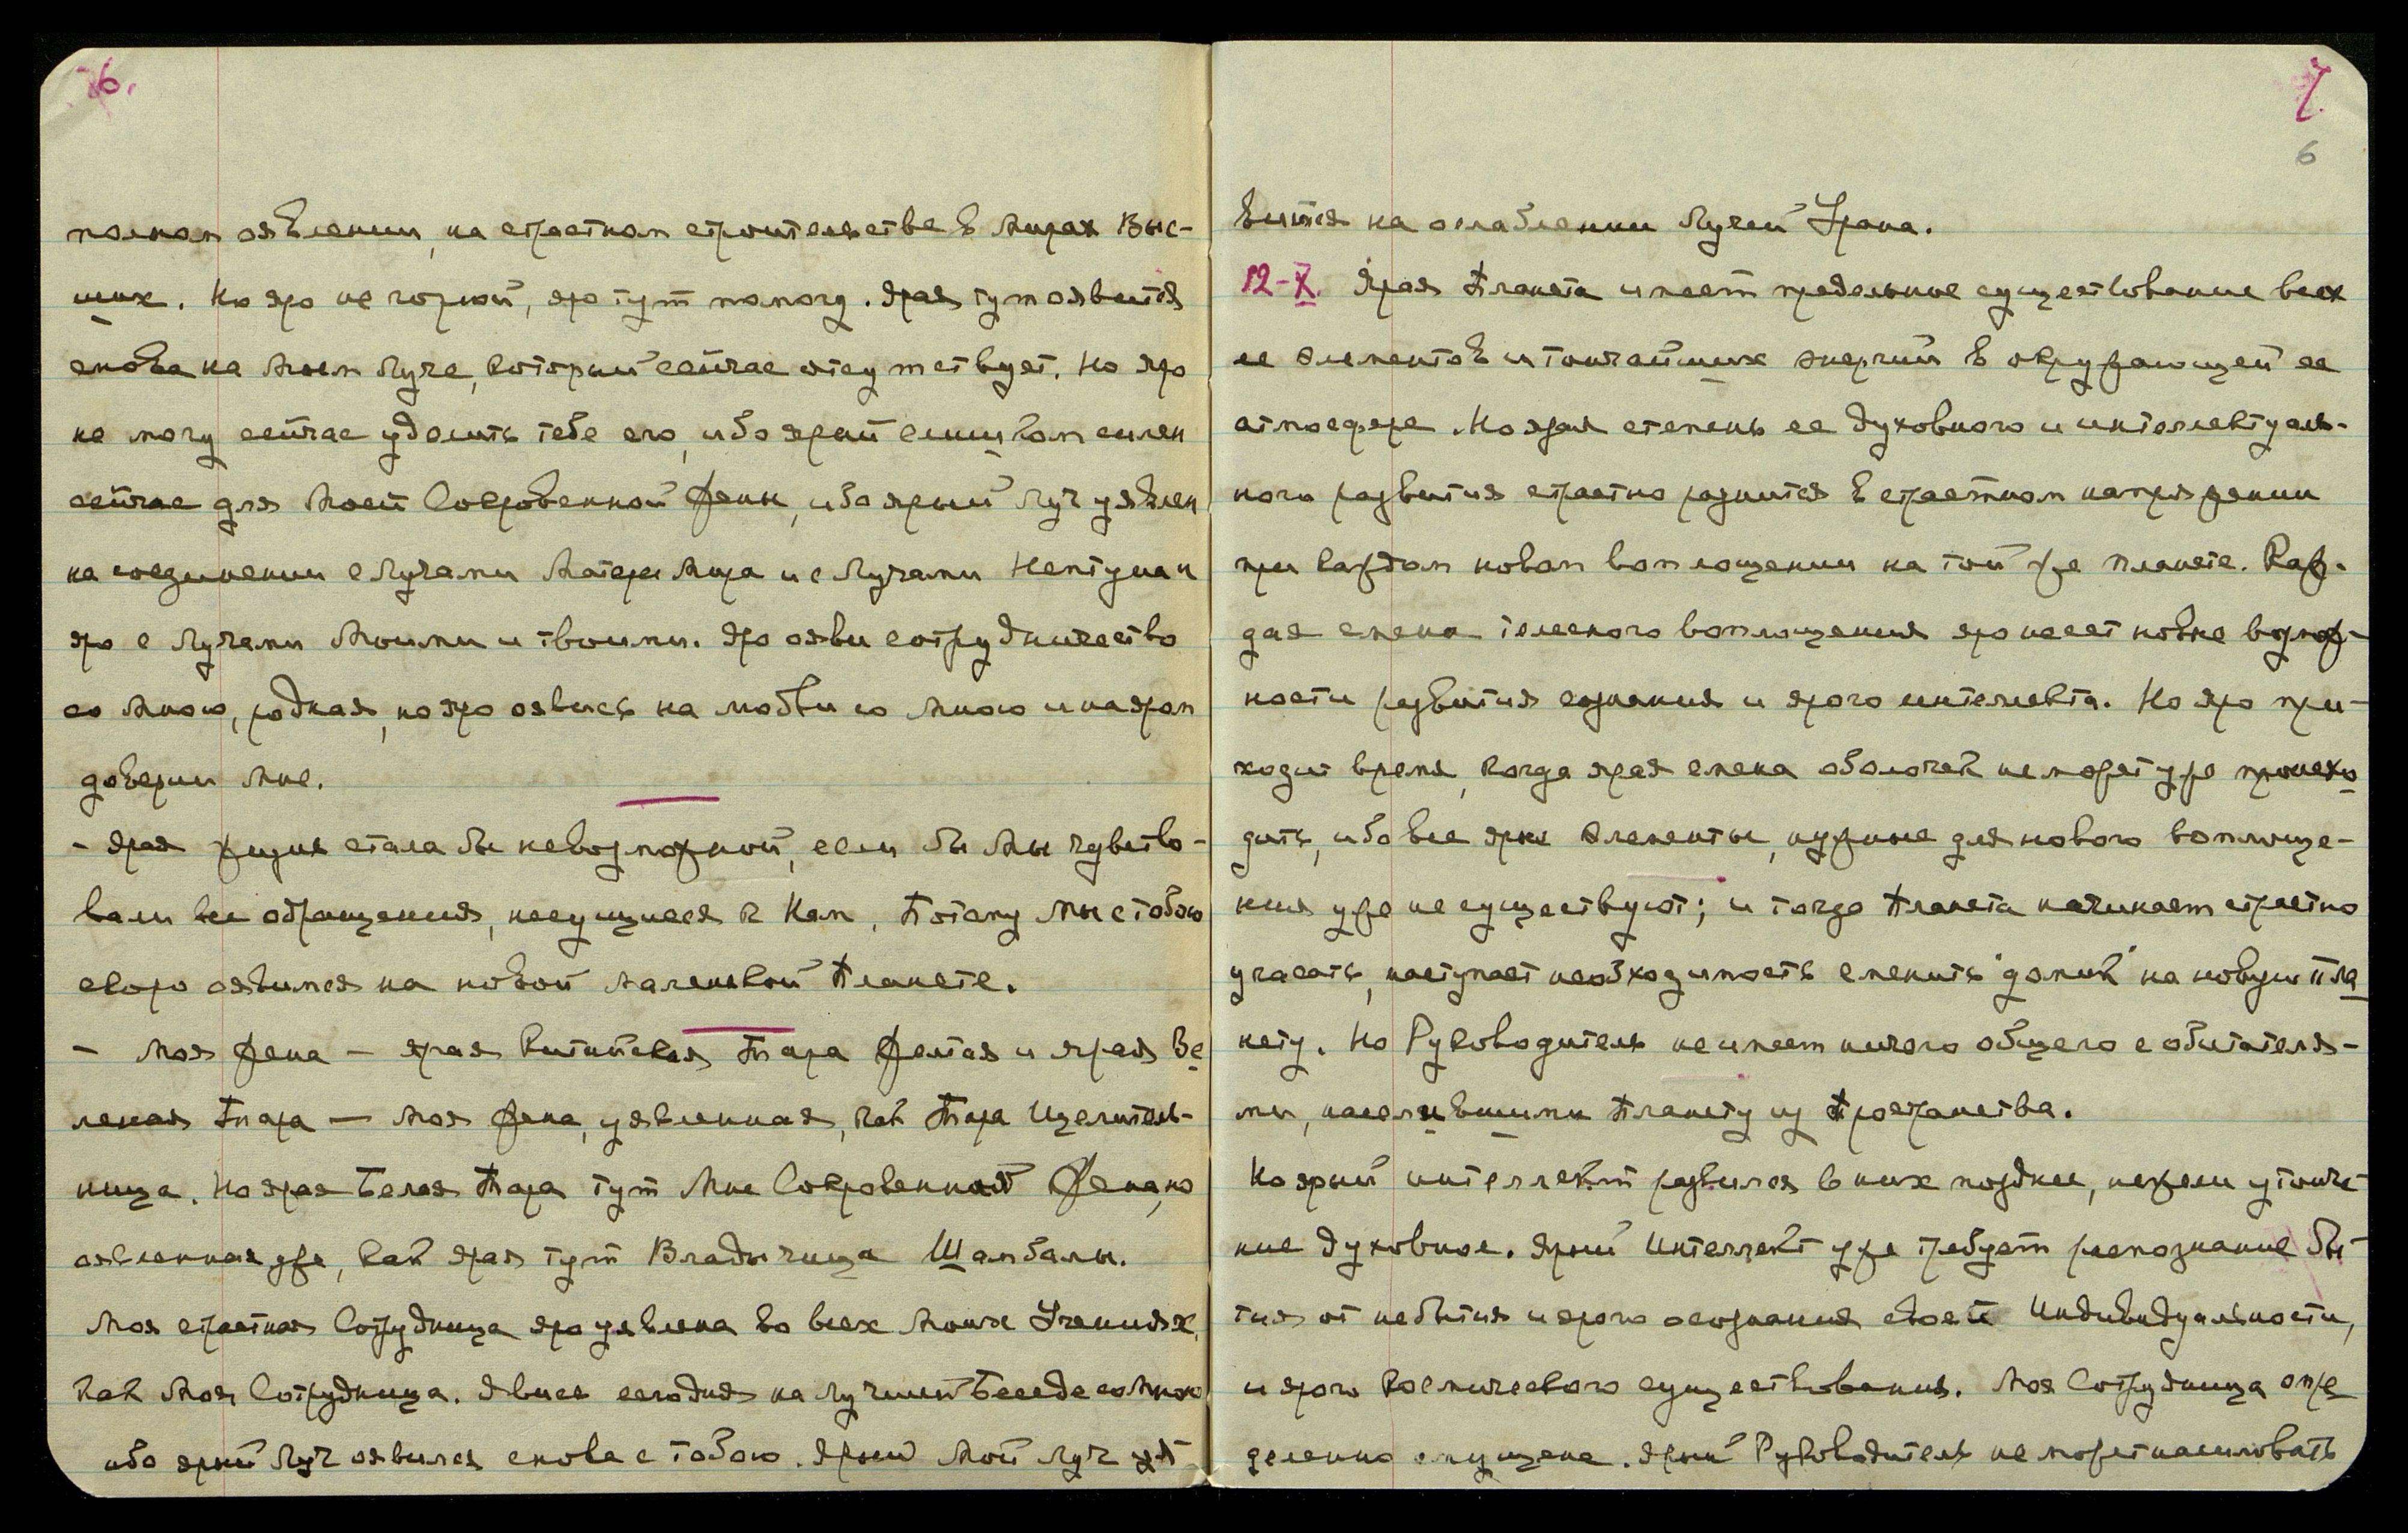 6.
полном оявлении, на страстном строительстве в Мирах Выс-
ших. Но яро не горюй, яро тут помогу. Ярая тут оявится
снова на Моем Луче, который сейчас отсутствует. Но яро
не могу сейчас уделить тебе его, ибо ярый слишком силен
сейчас для Моей Сокровенной Жены, ибо ярый Луч уявлен
на соединении с Лучами Матери Мира и с Лучами Нептуна и
яро с Лучами Моими и твоими. Яро яви сотрудничество
со Мною, родная, но яро оявись на любви со Мною и на яром
доверии Мне.
- Ярая жизнь стала бы невозможной, если бы Мы чувство-
вали все обращения, несущиеся к Нам. Потому Мы с тобою
скоро оявимся на новой маленькой Планете.
- Моя Жена — ярая Китайская Тара Желтая и ярая Зе
леная Тара — Моя Жена, уявленная, как Тара Целитель-
ница. Но ярая Белая Тара тут Мне Сокровенной Жена, но
оявленная уже, как ярая тут Владычица Шамбалы.
Моя страстная Сотрудница яро уявлена во всех Моих Учениях,
как Моя Сотрудница. Явися сегодня на лучшей Беседе со Мною
ибо ярый Луч оявился снова с тобою. Ярый Мой Луч уя
7
6
вится на ослаблении Лучей Урана.
12-X. Ярая Планета имеет предельное существование всех
ее элементов и тончайших энергий в окружающей ее
атмосфере. Но ярая степень ее духовного и интеллектуаль-
ного развития страстно разнится в страстном напряжении
при каждом новом воплощении на той же планете. Каж-
дая смена телесного воплощения яро несет новые возмож-
ности развития сознания и ярого интеллекта. Но яро при-
ходит время, когда ярая смена оболочек не может уже происхо
дить, ибо все ярые элементы, нужные для нового воплоще-
ния уже не существуют; и тогда Планета начинает страстно
угасать, наступает необходимость сменить "домик" на новую пла
нету. Но Руководитель не имеет ничего общего с обитателя-
ми, населившими Планету из Пространства.
Но ярый интеллект развился в них позднее, нежели утонче-
ние духовное. Ярый Интеллект уже требует распознание бы-
тия от небытия и ярого осознания своей Индивидуальности,
и ярого Космического существования. Моя Сотрудница опре
деленно смущена. Ярый Руководитель не может насиловать